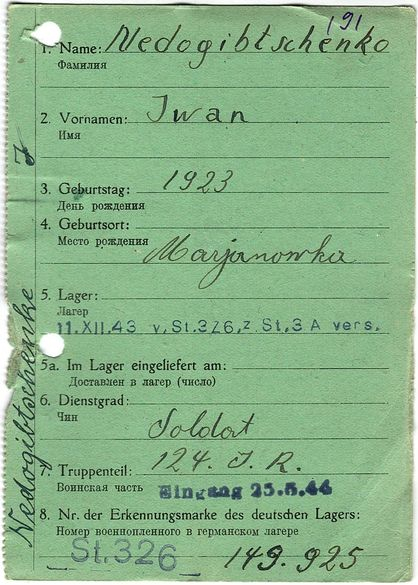 191
1. Name: Nedogibtschenko
Фамилия
2. Vornamen: Iwan
Имя
3. Geburtstag: 1923
День рождения
4. Geburtsort:
Место рождения Marjanowka
5. Lager:
Лагер
11.XII.43 v. St.326, z St.3 A vers.
5a. Im Lager eingeliefert am:
Доставлен в лагер (число)
6. Dienstgrad:
Чин Soldat
7. Truppenteil: 124. I. R.
Воинская часть Eingang 25.5.44
8. Nr. der Erkennungsmarke des deutschen Lagers:
Номер военнопленного в германском лагере
St. 326 149.925
Nedogibtschenke J